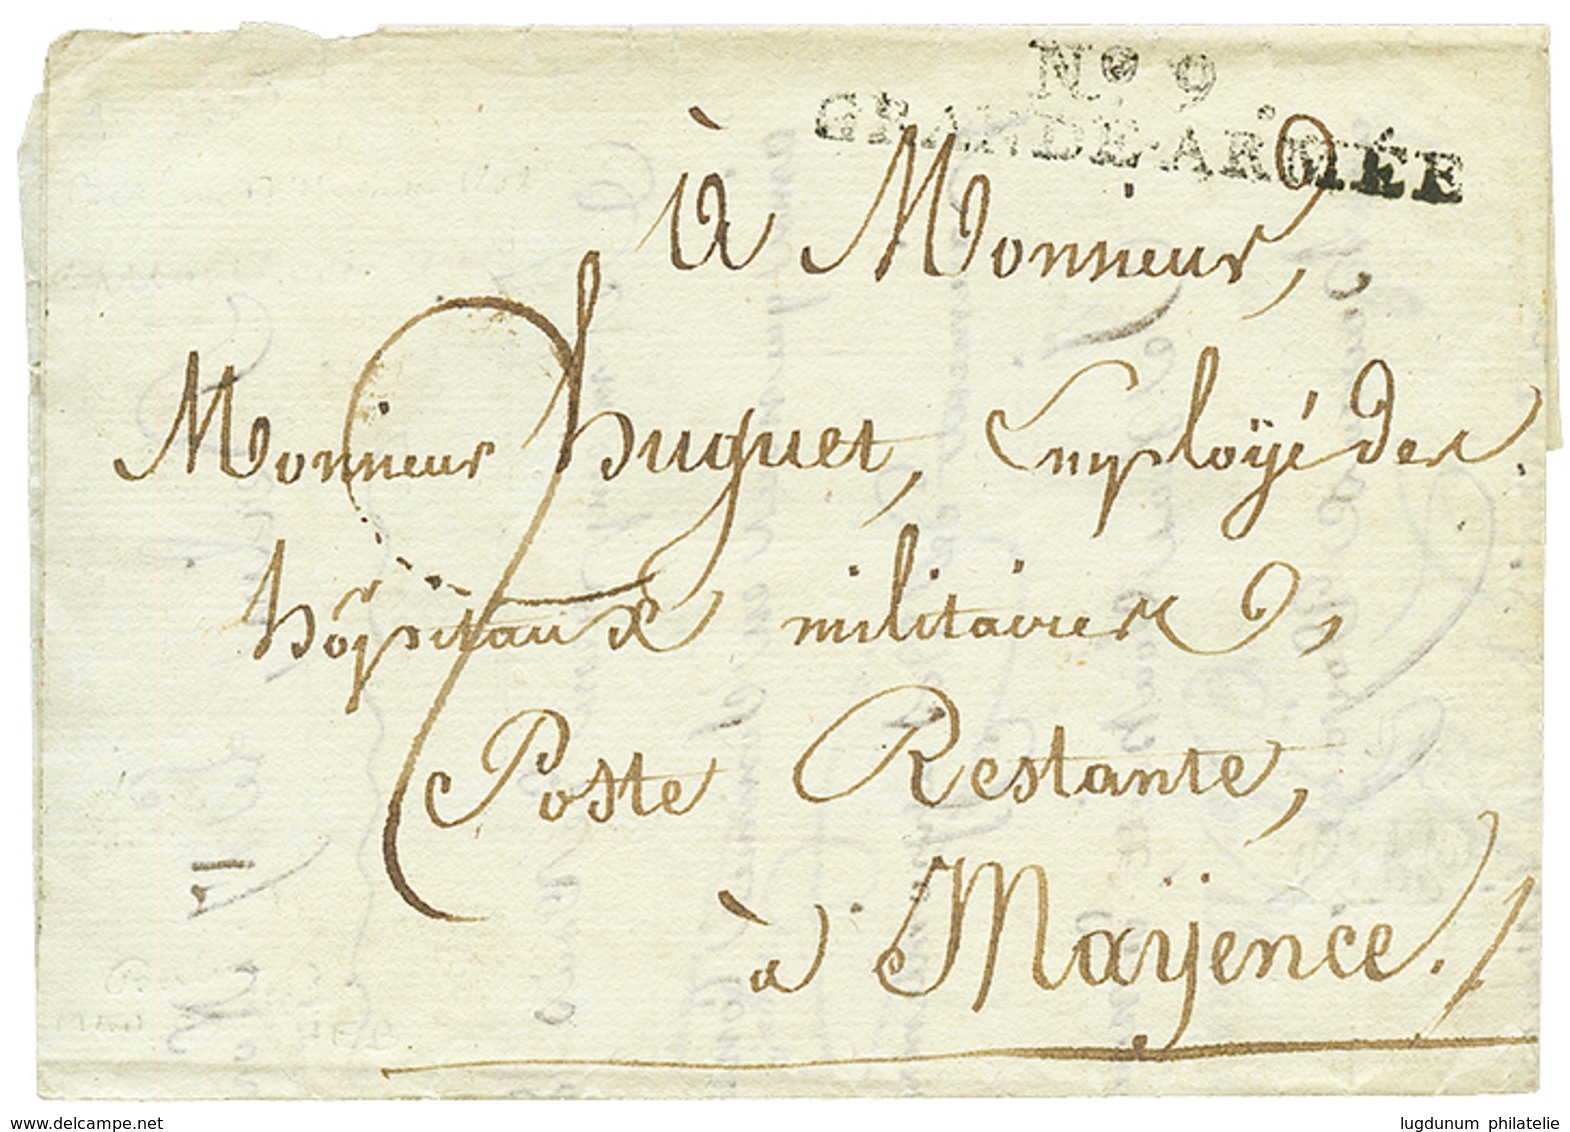 Nº. 9
GRANDE-ARMÉE
à Monsieur,
Monsieur huguet, Employé des
hôpitaux militaires,
Poste Restante,
à Mayence.
www.delcampe.net
lugdunum philatelie